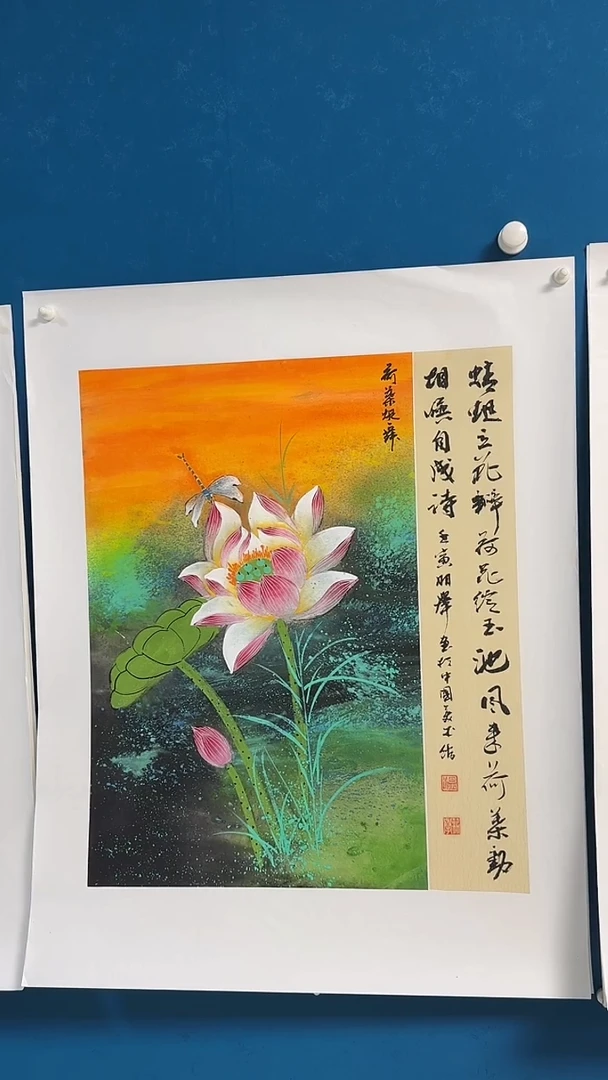 蜻蜓立花蜂荷花绽玉池风来荷叶动
相顾自成诗
壬寅明举画于中国美术馆
荷叶蜓舞